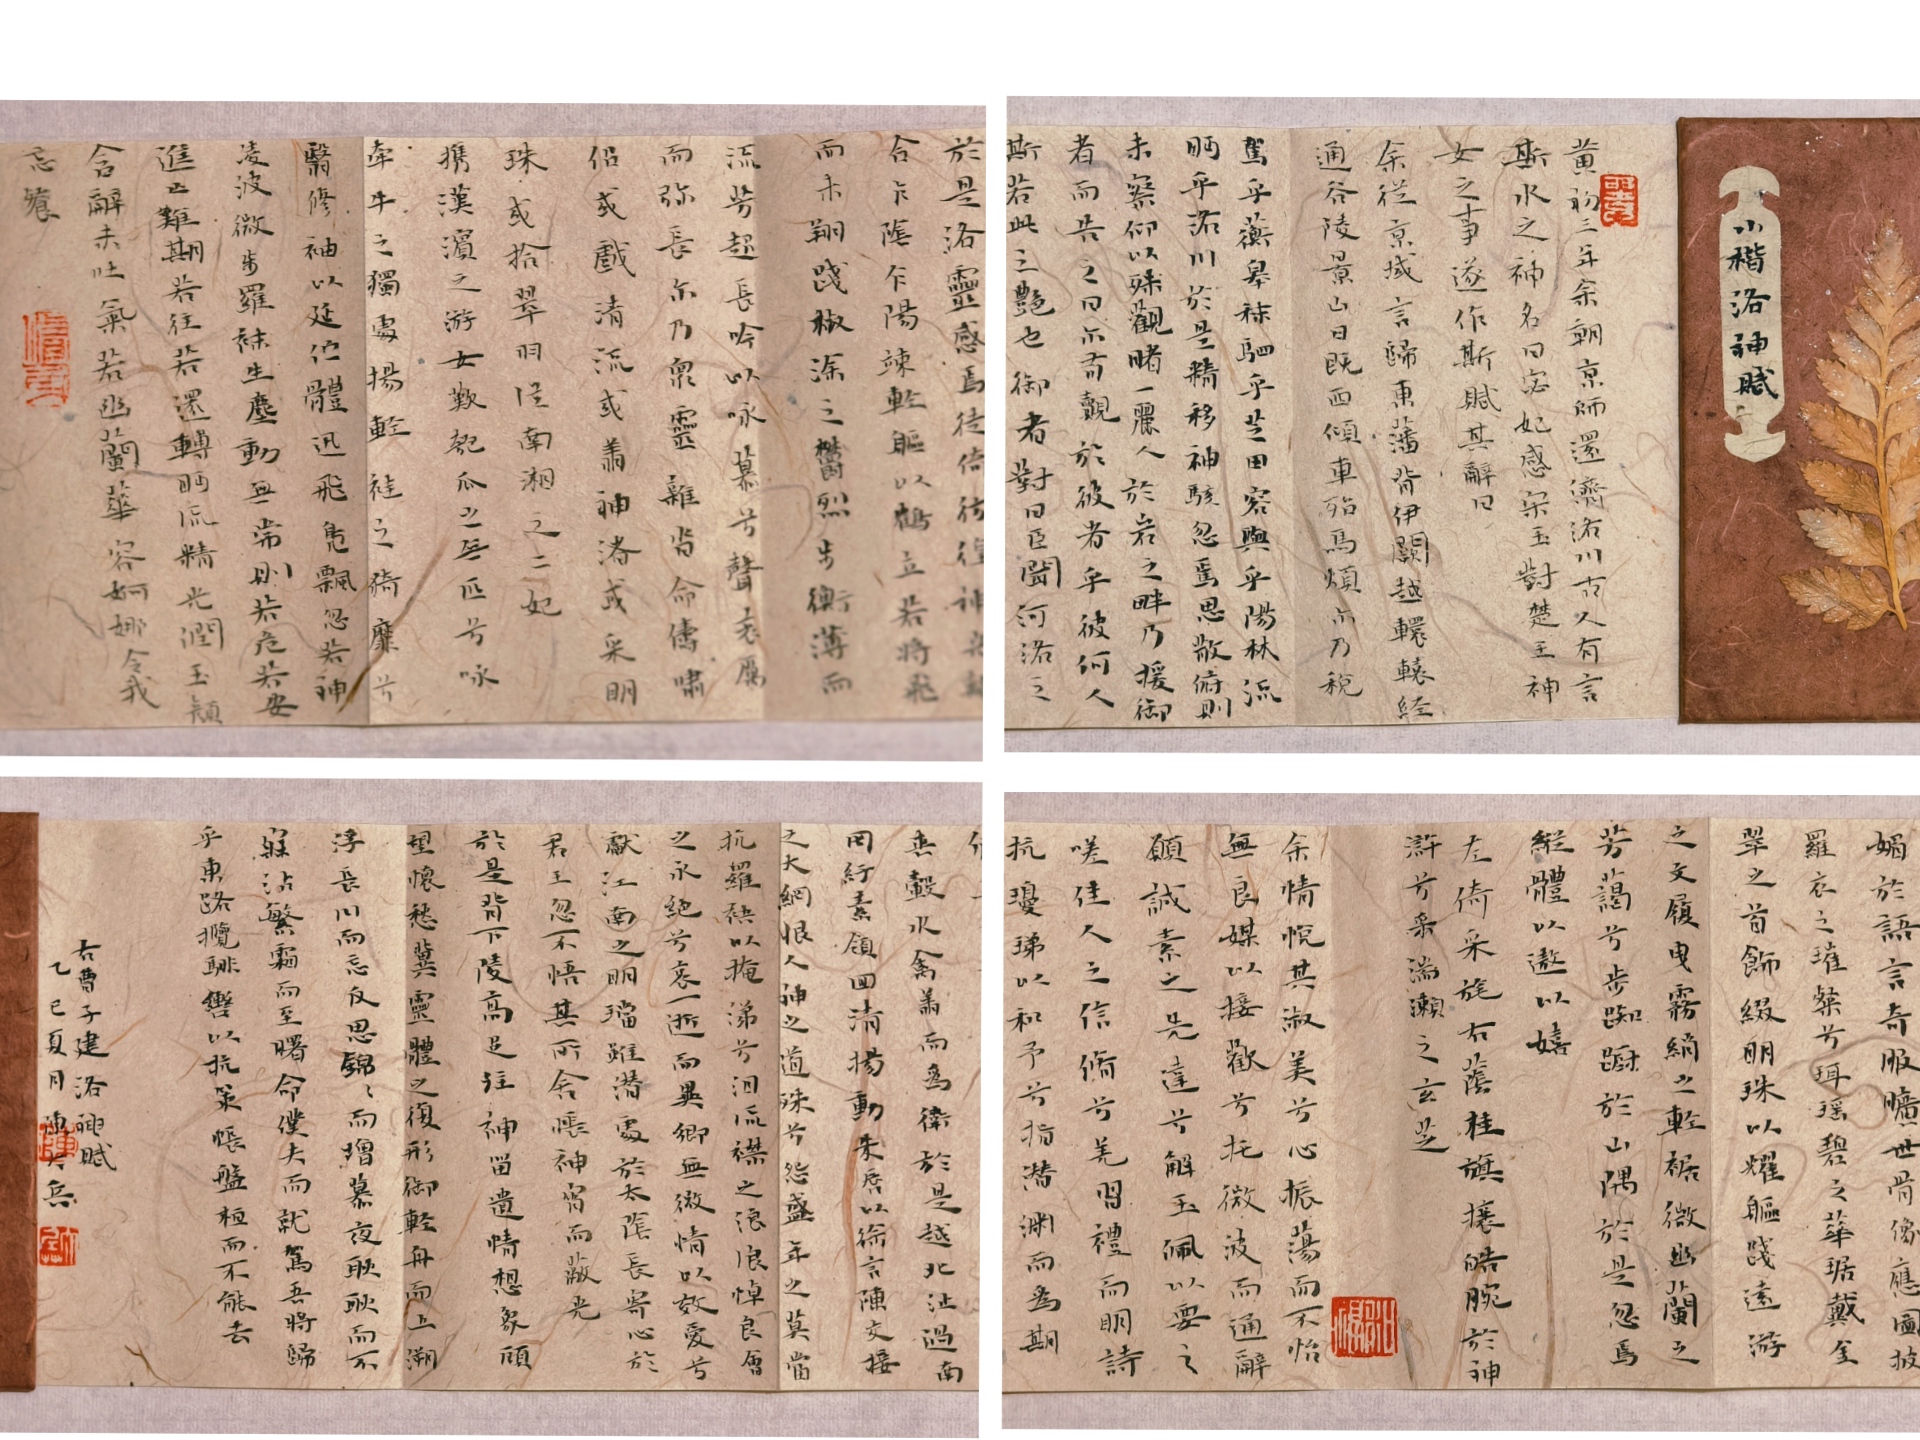 小楷洛神賦
黄初三年余朝京師還濟洛川古人有言
斯水之神名曰宓妃感宋玉對楚王神
女之事遂作斯賦其辭曰
余從京域言歸東藩背伊闕越轘轅經
通谷陵景山日既西傾車殆馬煩尔乃税
駕乎蘅皋秣駟乎芝田容與乎陽林流
眄乎洛川於是精移神駭忽焉思散俯則
未察仰以殊觀睹一麗人於岩之畔乃援御
者而告之曰尔有覿於彼者乎彼何人
斯若此之艷也御者對曰臣聞河洛之
媚於語言奇服曠世骨像應圖披
羅衣之璀粲兮珥瑶碧之華琚戴金
翠之首飾綴明珠以耀軀踐遠游
之文履曳霧綃之輕裾微幽蘭之
芳藹兮步踟躕於山隅於是忽焉
縱體以遨以嬉
左倚采旄右蔭桂旗攘皓腕於神
滸兮采湍瀨之玄芝
余情悦其淑美兮心振蕩而不怡
無良媒以接歡兮托微波而通辭
願誠素之先達兮解玉佩以要之
嗟佳人之信脩兮羌習禮而明詩
抗瓊珶以和予兮指潛淵而爲期
於是洛靈感焉徙倚彷徨神光
合乍陰乍陽竦輕軀以鶴立若將飛
而未翔踐椒涂之鬱烈步衡薄而
流芳超長吟以咏慕兮聲哀厲
而弥長尔乃衆靈雜沓命儔嘯
侣或戲清流或翔神渚或采明
珠或拾翠羽從南湘之二妃
攜漢濱之游女歎匏瓜之無匹兮咏
牽牛之獨處揚輕袿之猗靡兮
翳修袖以延佇體迅飛鳧飄忽若神
凌波微步羅襪生塵動無常則若危若安
進止難期若往若還轉眄流精光潤玉顏
含辭未吐氣若幽蘭華容婀娜令我
忘餐
轂水禽翔而爲衛於是越北沚過南
岡紆素領回清揚動朱唇以徐言陳交接
之大綱恨人神之道殊兮怨盛年之莫當
抗羅袂以掩涕兮泪流襟之浪浪悼良會
之永絶兮哀一逝而異鄉無微情以效愛兮
獻江南之明璫雖潛處於太陰長寄心於
君王忽不悟其所舍悵神宵而蔽光
於是背下陵高足往神留遺情想象顧
望懷愁冀靈體之復形御輕舟而上溯
浮長川而忘反思綿〻而增慕夜耿耿而不
寐沾繁霜而至曙命僕夫而就駕吾將歸
乎東路攬騑轡以抗策悵盤桓而不能去
右曹子建洛神賦
乙巳夏月